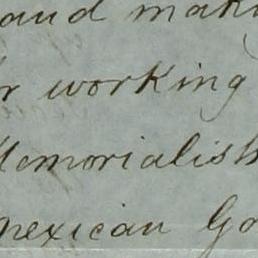 and maki
r working
Memorialist
mexican Go